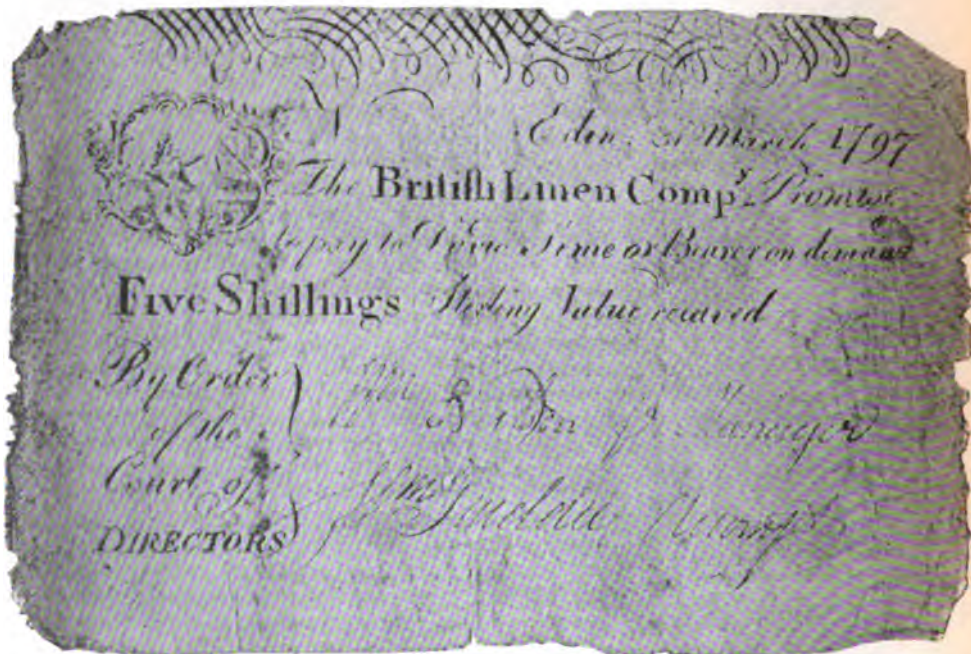 Edinr. 31 March 1797
The British Linen Compy. Promise
to pay to David Sime or Bearer on demand
Five Shillings Sterling Value received
By Order
of the Manager
Court of
DIRECTORS